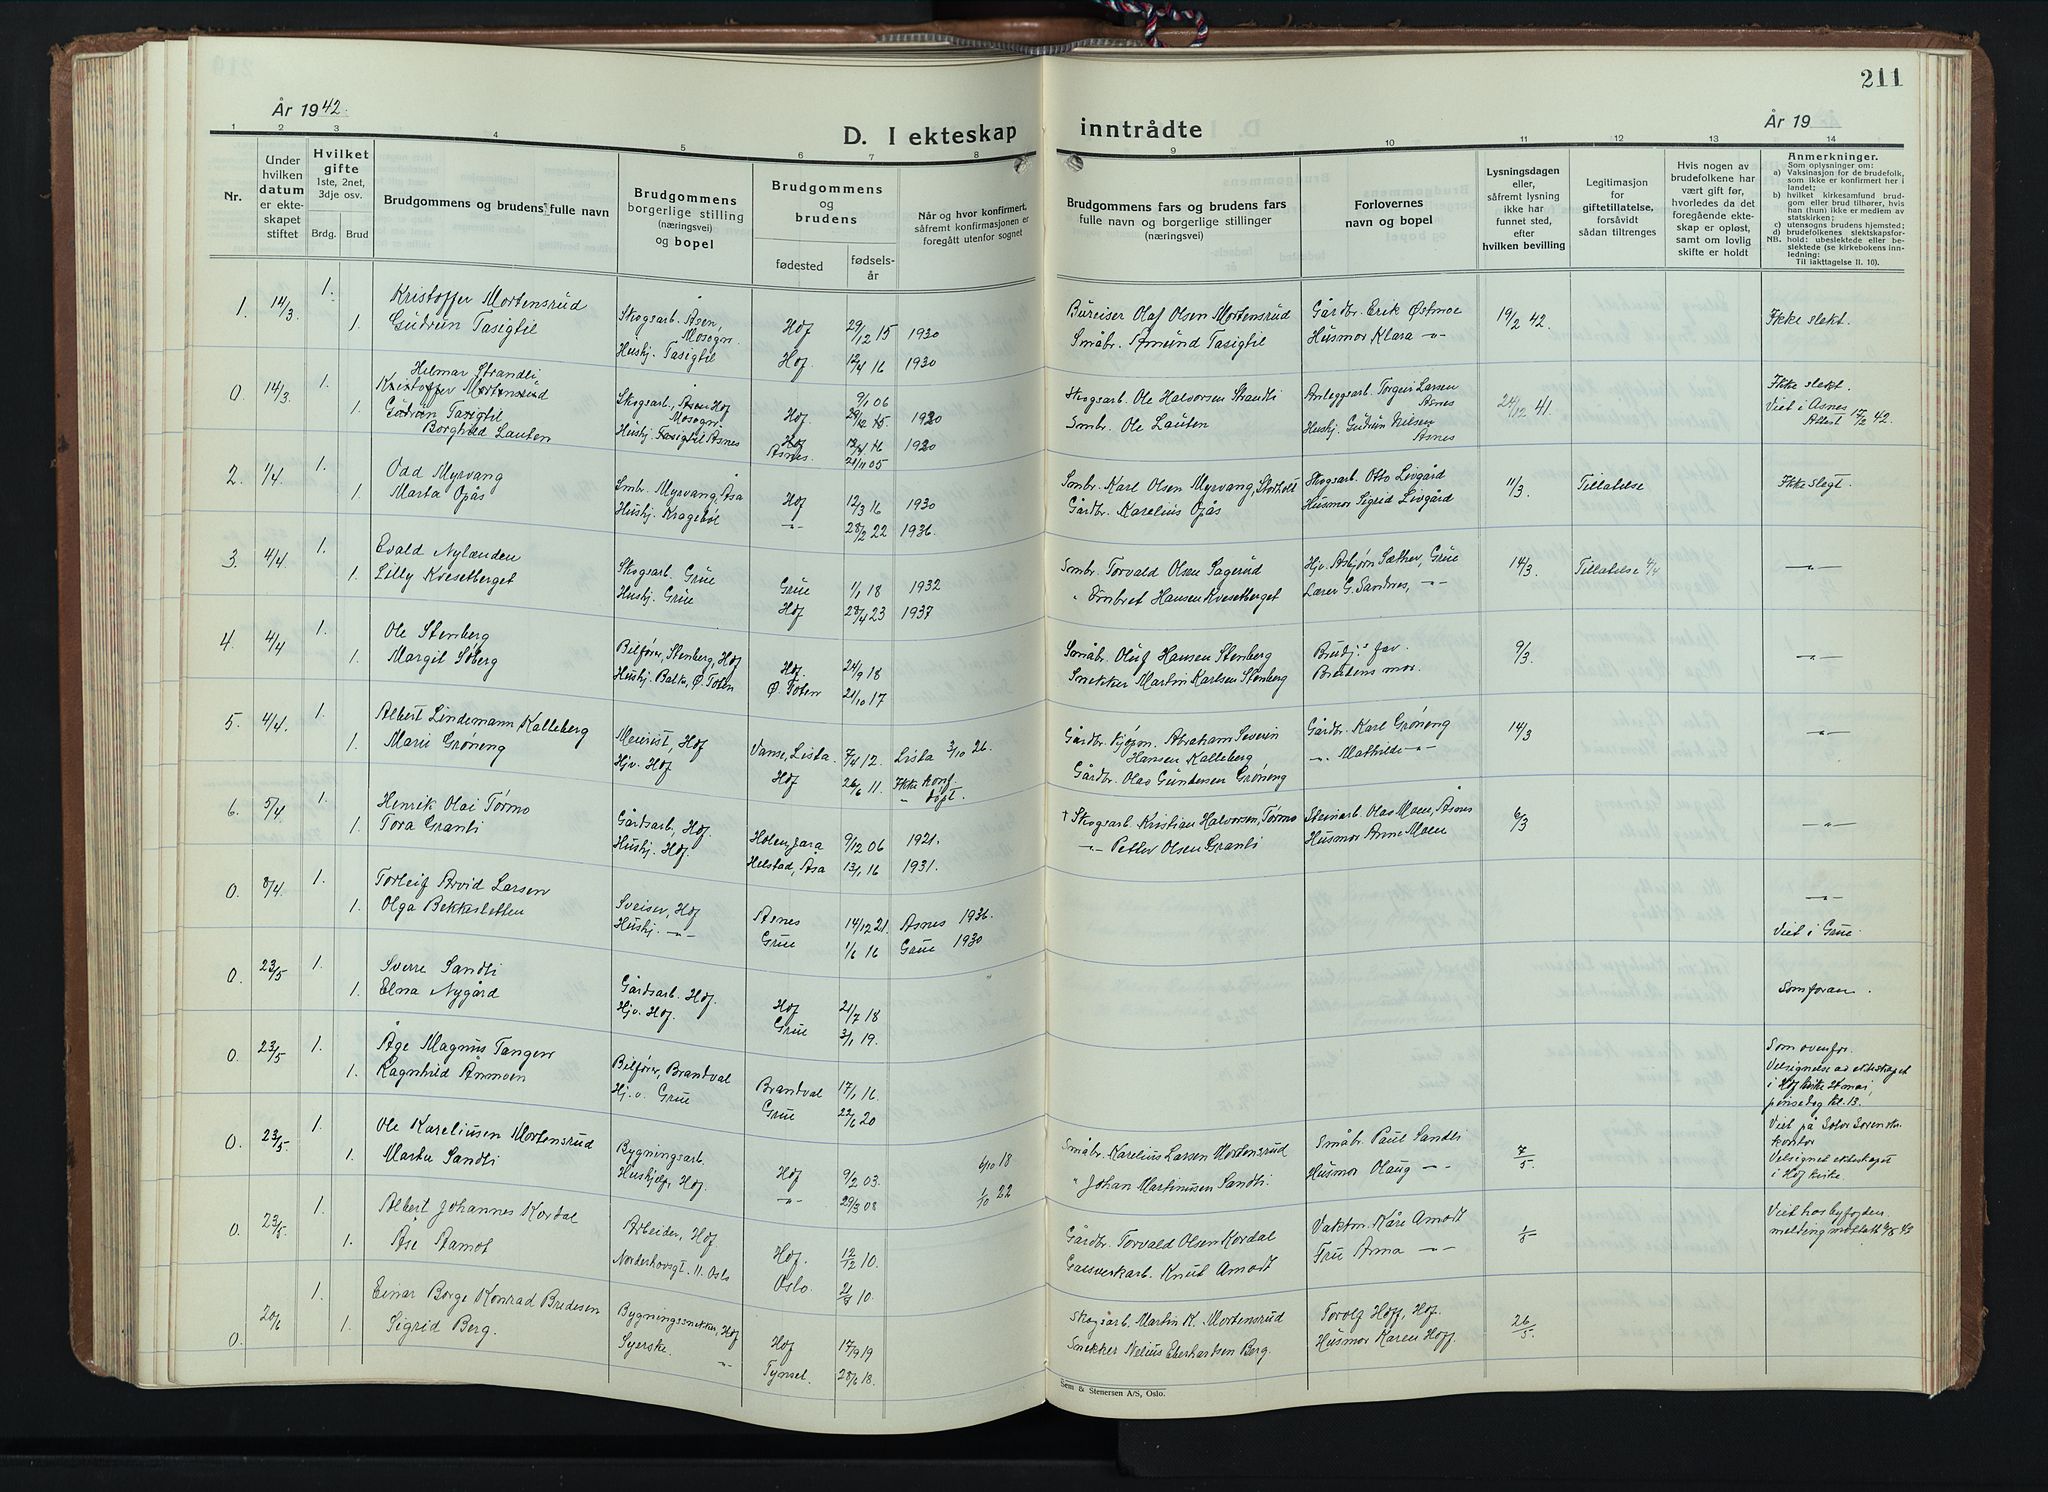 211
År 1942.
D. I ekteskap inntrådte
År 19
1 2 3 4 5 6 7 8 9 10 11 12 13 14
Nr.
Under hvilken datum er ekteskapet stiftet
Hvilket gifte 1ste, 2net, 3dje osv.
Brdg. Brud
Brudgommens og brudens fulle navn
Brudgommens borgerlige stilling (næringsvei) og bopel
Brudgommens og brudens
fødested
fødselsår
Når og hvor konfirmert, såfremt konfirmasjonen er foregått utenfor sognet
Brudgommens fars og brudens fars fulle navn og borgerlige stillinger (næringsvei)
Forlovernes navn og bopel
Lysningsdagen eller, såfremt lysning ikke har funnet sted, efter hvilken bevilling
Legitimasjon for giftetillatelse, forsåvidt sådan tiltrenges
Hvis nogen av brudefolkene har vært gift før, hvorledes da det foregående ekteskap er opløst, samt om lovlig skifte er holdt
Anmerkninger.
Som oplysninger om:
a) Vaksinasjon for de brudefolk, som ikke er konfirmert her i landet;
b) hvilket kirkesamfund brudgom eller brud tilhører, hvis han (hun) ikke er medlem av statskirken;
c) utensogns brudens hjemsted;
d) brudefolkenes slektskapsforhold:
NB. ubeslektede eller beslektede (se kirkebokens innledning: Til iakttagelse II. 10).
1. 14/3 1. Kristoffer Mortensrud Skogsarb. Åsen, Mosogn. Hof 29/12 15 1930 Bureiser Olaf Olsen Mortensrud Gårdbr. Erik Østmoe 19/2 42. Ikke slekt.
1. Gudrun Tasigtil Hushj. Tasigtil Hof. 12/4 16 1930 Småbr. Amund Tasigtil Husmor Klara -"-
Helmar Strandli
0. 14/3 1. Kristoffer Mortensrud Skogsarb. Åsen Hof Mosogn. Hof. 9/1 06 29/12 15. 1920 Skogsarb. Ole Halvorsen Strandli Anleggsarb. Torgeir Larsen Åsnes 24/12 41. Ikke slekt.
1. Gudrun Tasigtil Hushj. Tasigtil Åsnes Hof 12/4 16 1920 Smbr. Ole Lauten Hushj. Gudrun Nilsen Åsnes Viet i Åsnes
Borghild Lauten Åsnes. 21/11 05 Attest 17/2 42.
2. 1/4 1. Odd Myrvang Smbr. Myrvang, Åsa Hof 12/3 16 1930 Smbr. Karl Olsen Myrvang, Storholt Skogsarb. Otto Livgård 11/3. Tillatelse Ikke slegt.
1. Marta Opås Hushj. Kragebøl -"- 28/2 22 1936. Gårdbr. Karelius Opås Husmor Sigrid Livgård
3. 4/4 1. Evald Nylænden Skogsarb. Grue Grue 1/1 18 1932 Smbr. Torvald Olsen Sagerud Hjv. Asbjørn Sæther, Grue 14/3. Tillatelse 4/4 -"-
1. Lilly Kvesetberget Hushj. Grue Hof 28/4 23 1937 " Embret Hansen Kvesetberget Lærer G. Sandnes, -"-
4. 4/4 1. Ole Stenberg Bilfører, Stenberg, Hof Hof. 24/9 18 Småbr. Oluf Hansen Stenberg Brudg.s far. 9/3. -"-
1. Margit Søberg Hushj. Balke, Ø. Toten Ø. Toten 21/10 17 Snekker Martin Karlsen Stenberg Brudens mor.
5. 4/4 1. Albert Lindemann Kalleberg Meierist, Hof Vanse, Lista. 7/4 12. Lista 3/10 26. Gårdbr. Abraham Severin Hansen Kalleberg Gårdbr. Karl Grøneng 14/3 -"-
1. Marie Grøneng Hjv. Hof Hof 26/6 11. Ikke konf. " døpt. Gårdbr. Olaf Gundersen Grøneng -"- Mathilde -"-
6. 5/4 1. Henrik Olai Tørmo Gårdsarb., Hof. Holen, Jara 9/12 06 1921. † Skogsarb. Kristian Halvorsen, Tørmo Steinarb. Olaf Moen, Åsnes 6/3 -"-
1. Tora Granli Hushj. Hof. Helstad, Åsa 13/1 16 1931. -"- Petter Olsen Granli Husmor Anne Moen
0. 8/4 1. Torleif Arvid Larsen Sveiser, Hof Åsnes 14/12 21. Åsnes 1936. -"-
1. Olga Bekkesletten Hushj. -"- Grue 1/6 16 Grue 1930 Viet i Grue
0. 23/5 1. Sverre Sandli Gårdsarb. Hof. Hof 21/7 18
1. Elna Nygård Hjv. Hof. Grue 3/1 19. Som foran.
0. 23/5 1. Åge Magnus Tangen Bilfører, Brandval Brandval 17/1 16. Som ovenfor.
1. Ragnhild Ånmoen Hj.v. Grue Grue 22/6 20 Velsignelse av ekteskapet
i Hof kirke 24 mai,
pinsedag kl. 13.
0. 23/5 1. Ole Kareliusen Mortensrud Bygningsarb. Hof 9/2 03. 6/10 18 Småbr. Karelius Larsen Mortensrud Småbr. Paul Sandli 7/5. Viet på Solør Sorenskr. kontor
1. Marta Sandli Hushjelp, Hof. -"- 29/3 08 1/10 22 " Johan Martinusen Sandli. Husmor Olaug -"- Velsignet ekteskapet
i Hof kirke.
0. 23/5 1. Albert Johannes Kordal Arbeider, Hof. Hof. 12/12 10. Gårdbr. Torvald Olsen Kordal Vaktm. Kåre Amodt Viet hos byfogden.
1. Åse Aamot Norderhovsgt. 11. Oslo Oslo. 10. Gassverkarb. Knut Amodt Fru Anna -"- melding mottatt
0. 20/6 1. Einar Borge Konrad Bredesen Bygningssnekker, Hof Hof 17/9 19 Skogsarb. Martin K. Mortensrud Torolf Hoff, Hof. 26/5.
1. Sigrid Berg. Syerske. -"- Tynset. 28/6 18. Snekker Nelius Eberhardsen Berg. Husmor Karen Hoff
Sem & Stenersen A/S, Oslo.